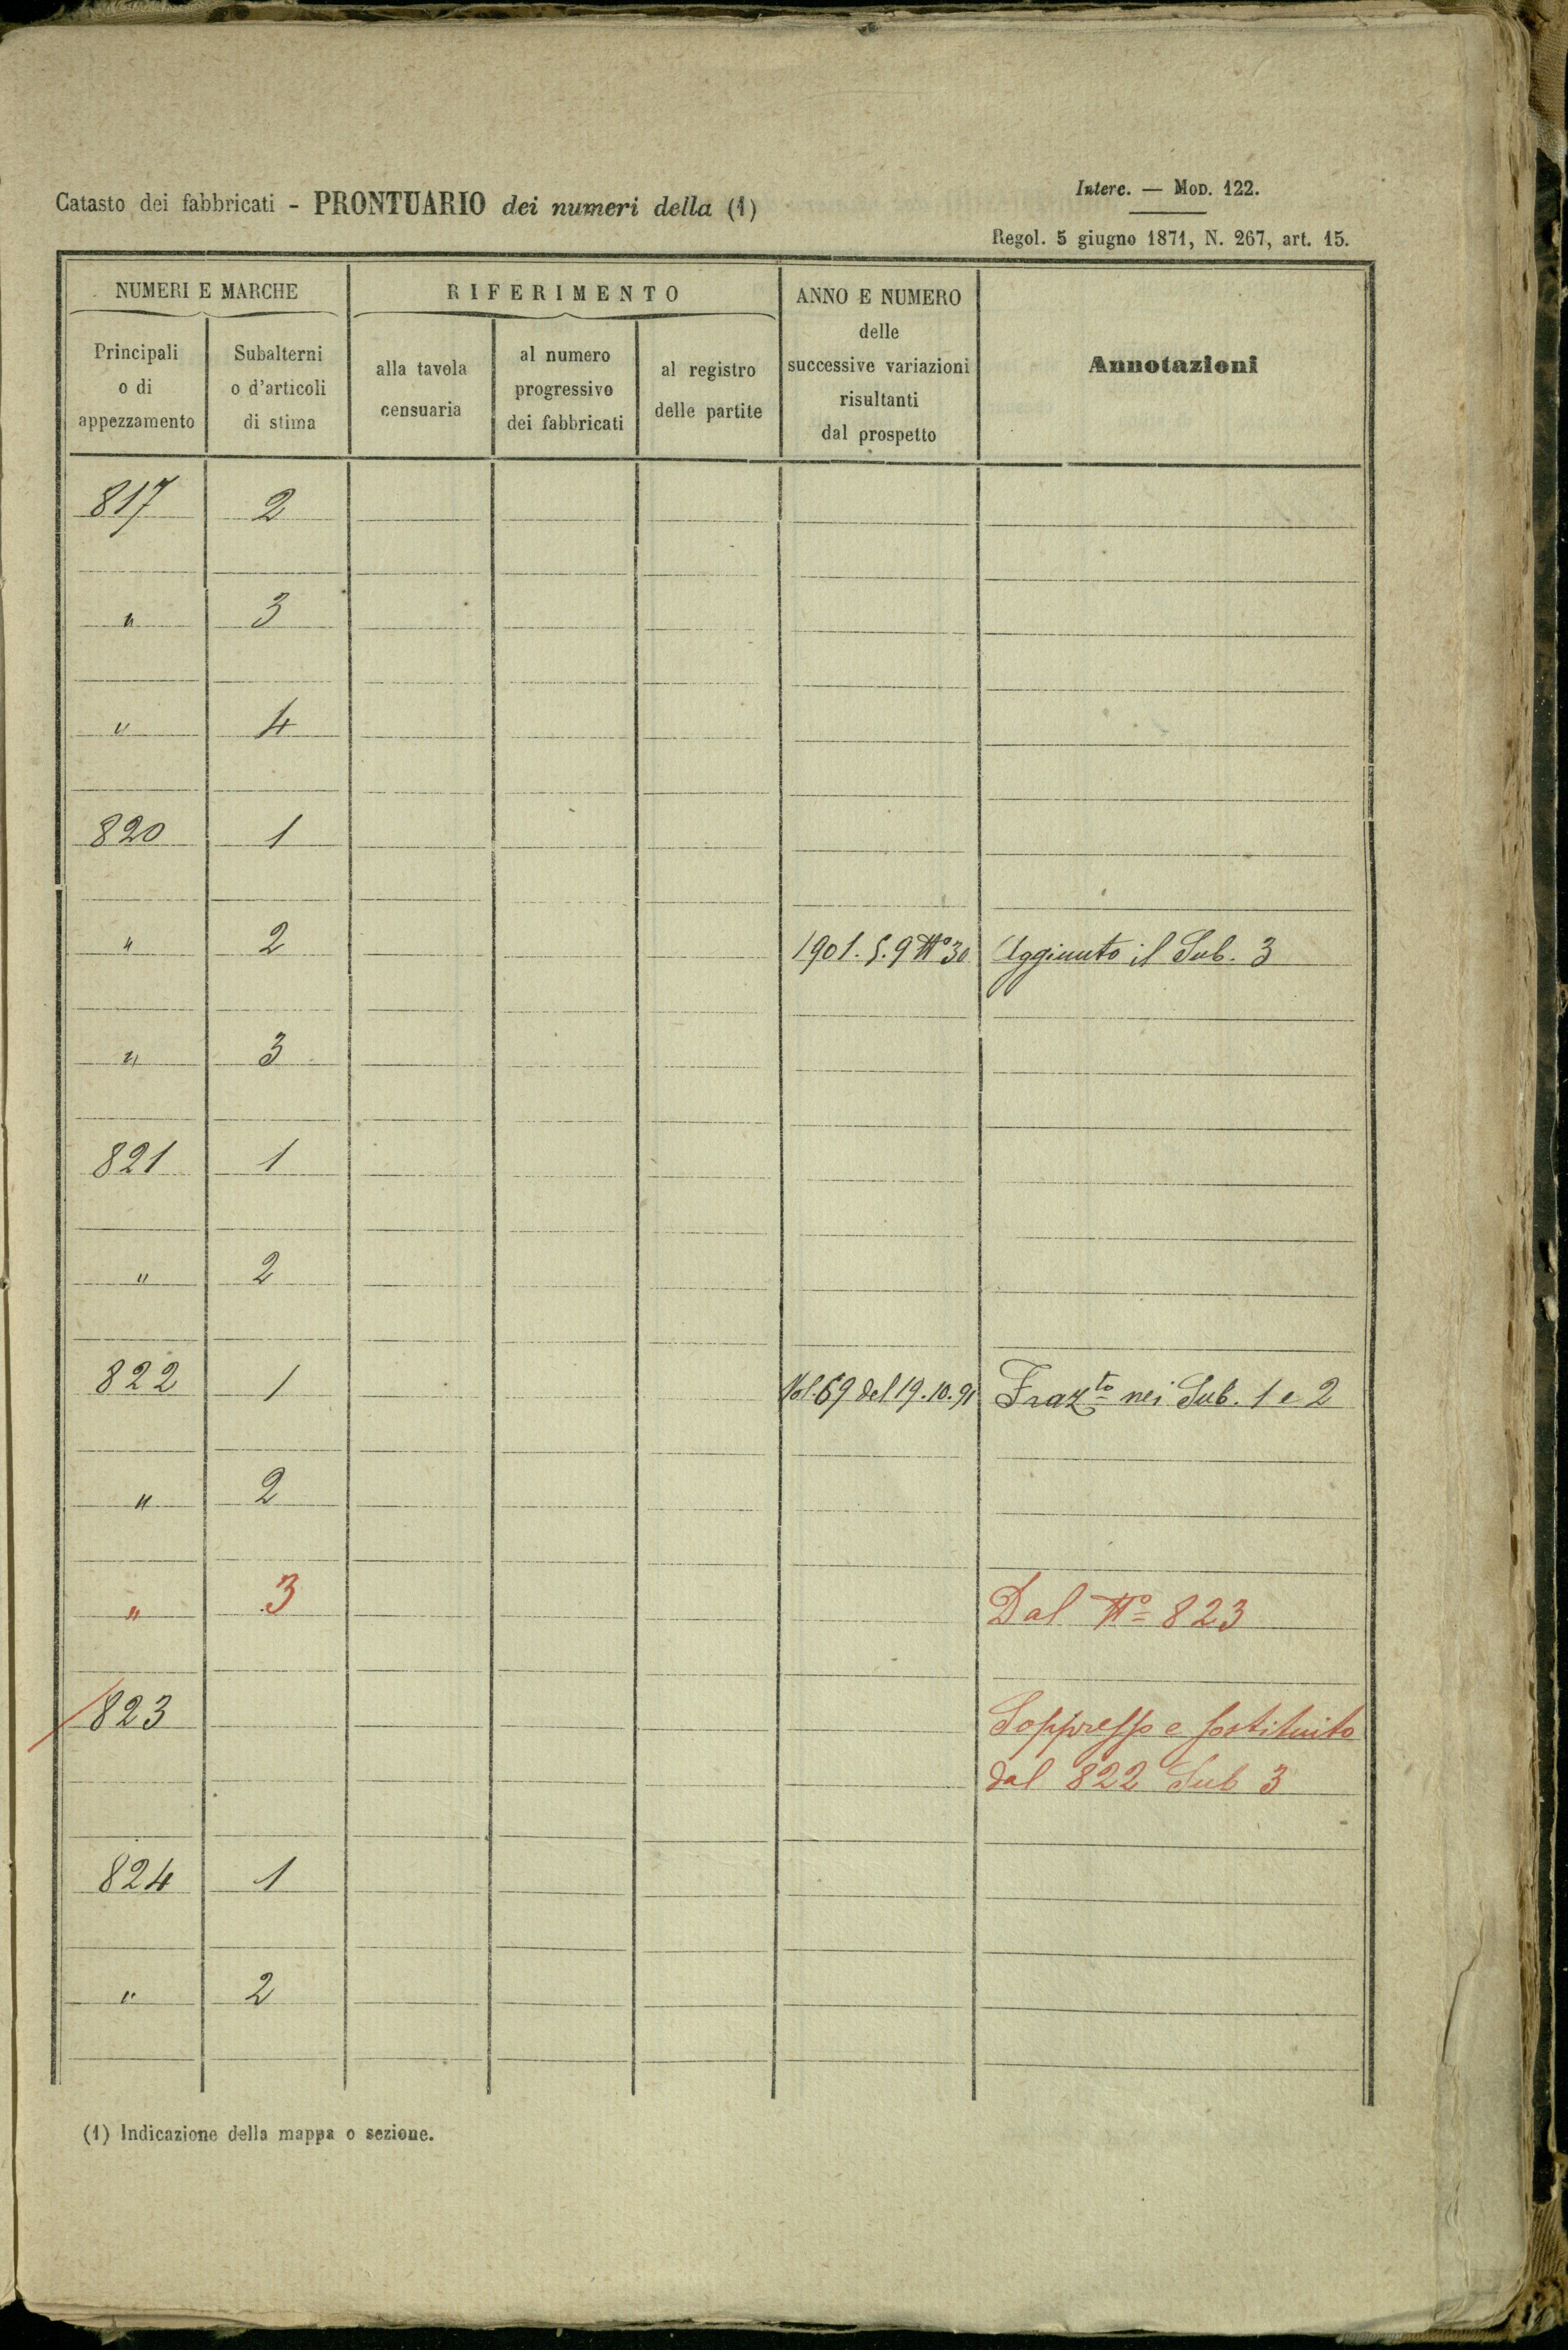 Catasto dei fabbricati - PRONTUARIO dei numeri della (1)
Interc. — Mod. 122.
Regol. 5 giugno 1871, N. 267, art. 15.
NUMERI E MARCHE
RIFERIMENTO
ANNO E NUMERO
delle
successive variazioni
risultanti
dal prospetto
Annotazioni
Principali
o di
appezzamento
Subalterni
o d'articoli
di stima
alla tavola
censuaria
al numero
progressivo
dei fabbricati
al registro
delle partite
817 2
" 3
" 4
820 1
" 2 1901. 5. 9 Nº 30 Aggiunto il Sub. 3
" 3
821 1
" 2
822 1 Vol. 69 del 19.10.91 Fraz.to nei Sub. 1 e 2
" 2
" 3 Dal Nº 823
823 Soppresso e sostituito
dal 822 Sub 3
824 1
" 2
(1) Indicazione della mappa o sezione.